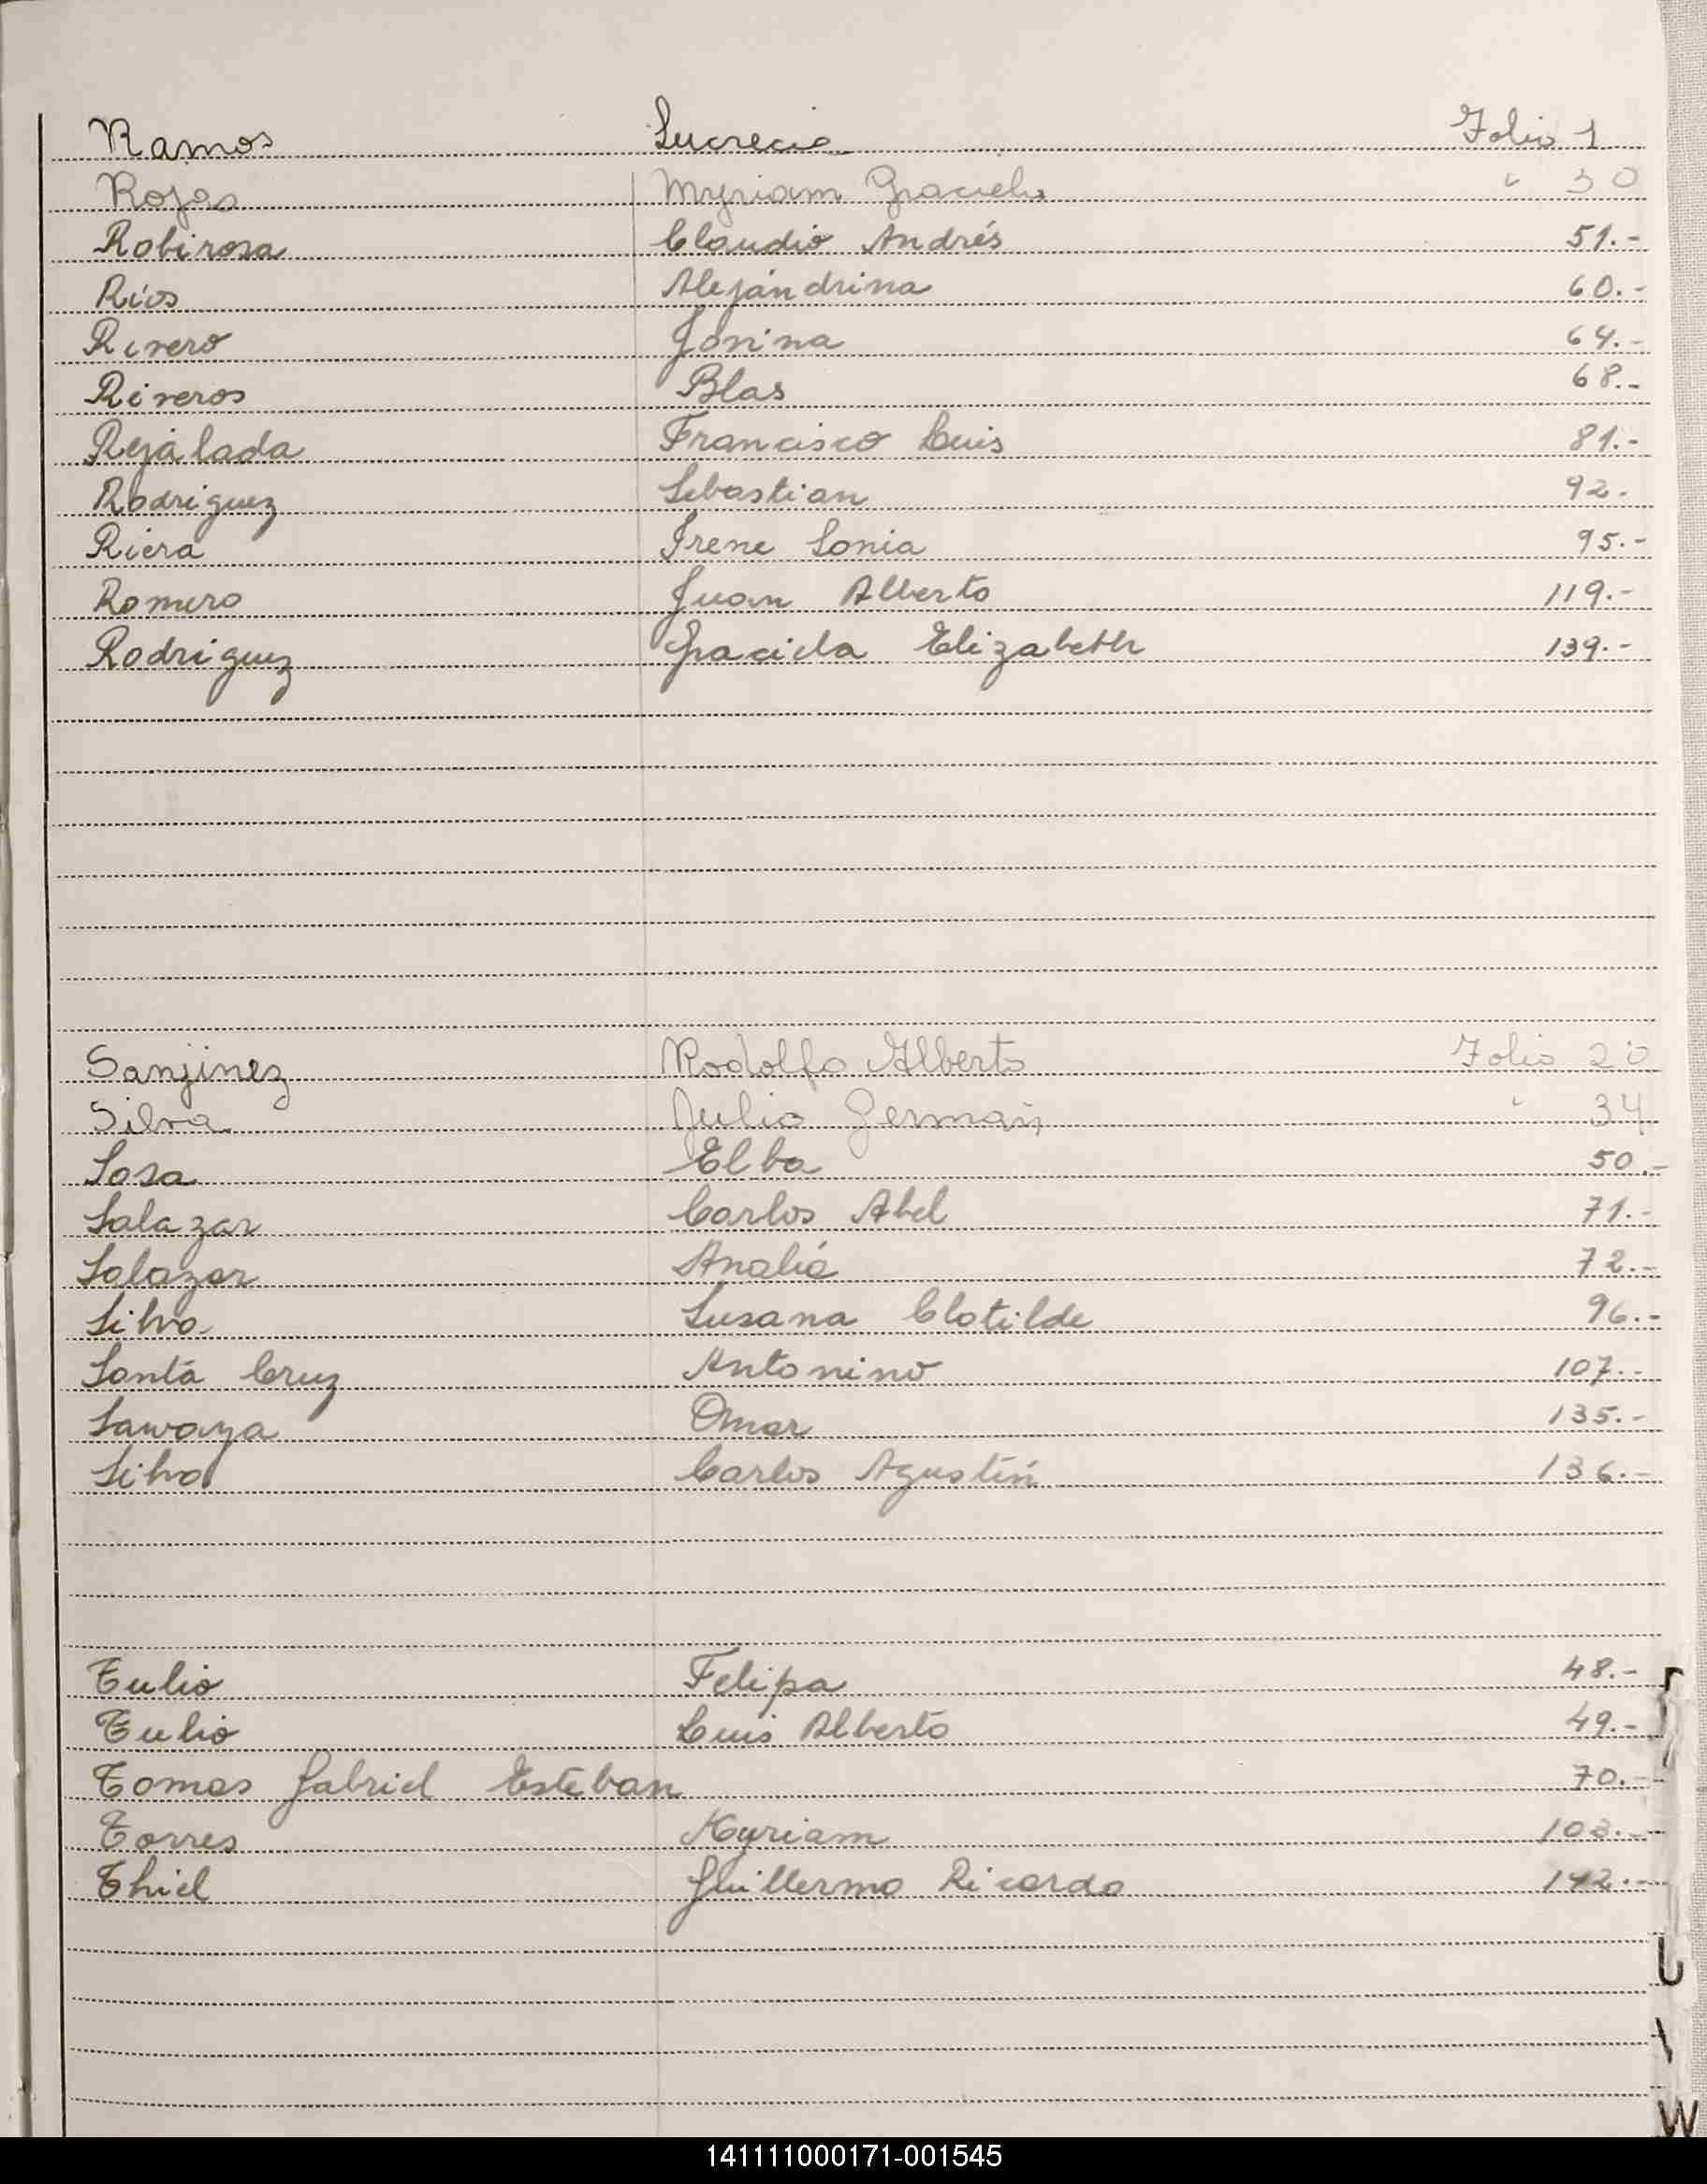 Ramos Lucrecia Folio 1
Rojas Myriam Graciela " 30
Robirosa Claudio Andrés 51.-
Ríos Alejandrina 60.-
Rivero Jonina 64.-
Riveros Blas 68.-
Rejalada Francisco Luis 81.-
Rodriguez Sebastian 92.-
Riera Irene Sonia 95.-
Romero Juan Alberto 119.-
Rodriguez Graciela Elizabeth 139.-
Sanjinez Rodolfo Alberto Folio 20
Silva Julio Germán " 34
Sosa Elba 50.-
Salazar Carlos Abel 71.-
Salazar Analía 72.-
Silva Susana Clotilde 96.-
Santa Cruz Antonino 107.-
Sawaya Omar 135.-
Silva Carlos Agustín 136.-
Tulio Felipa 48.-
Tulio Luis Alberto 49.-
Tomas Gabriel Esteban 70.-
Torres Myriam 103.-
Thiel Guillermo Ricardo 142.-
U
V
W
141111000171-001545